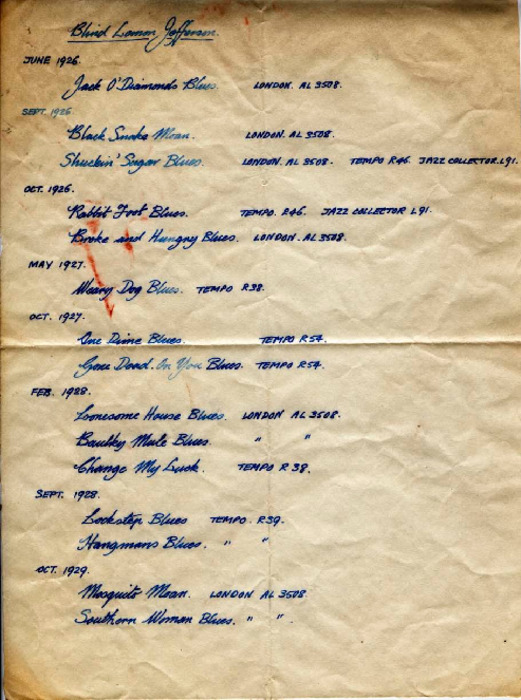 Blind Lemon Jefferson.
JUNE 1926.
Jack O'Diamonds Blues. LONDON. AL 3508.
SEPT. 1926.
Black Snake Moan. LONDON. AL 3508.
Shuckin' Sugar Blues. LONDON. AL 3508. TEMPO R46. JAZZ COLLECTOR. L91.
OCT. 1926.
Rabbit Foot Blues. TEMPO. R46. JAZZ COLLECTOR L91.
Broke and Hungry Blues. LONDON. AL 3508.
MAY 1927.
Weary Dog Blues. TEMPO R38.
OCT. 1927.
One Dime Blues. TEMPO R54.
Gone Dead. On You Blues. TEMPO R54.
FEB. 1928.
Lonesome House Blues. LONDON AL 3508.
Baulky Mule Blues. " "
Change My Luck. TEMPO R 38.
SEPT. 1928.
Lockstep Blues TEMPO. R39.
Hangmans Blues. " "
OCT. 1929.
Mosquito Moan. LONDON AL 3508.
Southern Woman Blues. " " .